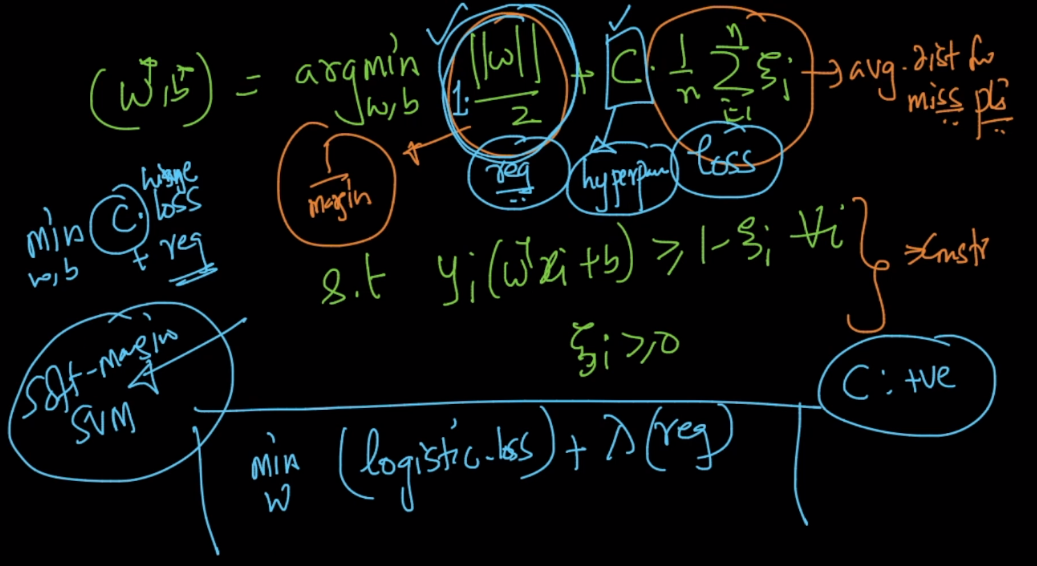 (w*, b*) = argmin w,b 1. ||w||/2 + C. 1/n Σ i=1 n ξi → avg. dist for
miss pts
margin
req
hyperparam
loss
min w,b C. hinge
loss
+ req
s.t yi(wᵀxi+b) ≥ 1-ξi ∀i
⇒ constr
ξi ≥ 0
C: +ve
Soft-margin
SVM
min w (logistic-loss) + λ(reg)